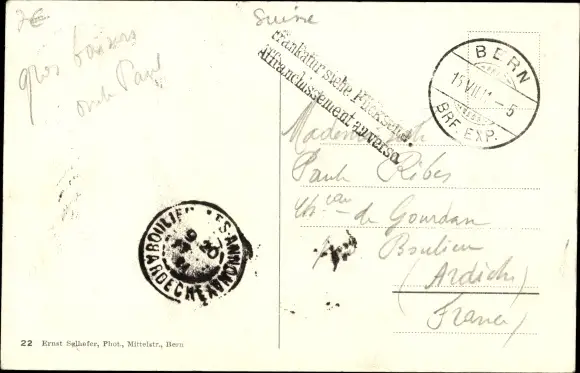 2€
Suisse
gros baisers
oncle Paul
Frankatur siehe Rückseite.
Affranchissement au verso.
BERN
BRF. EXP.
Mademoiselle
Paule Ribes
Ch.eau de Gourdan
Boulieu
(Ardèche)
(France)
BOULIEU-LES-ANNONAY
ARDECHE
22 Ernst Selhofer, Phot., Mittelstr., Bern